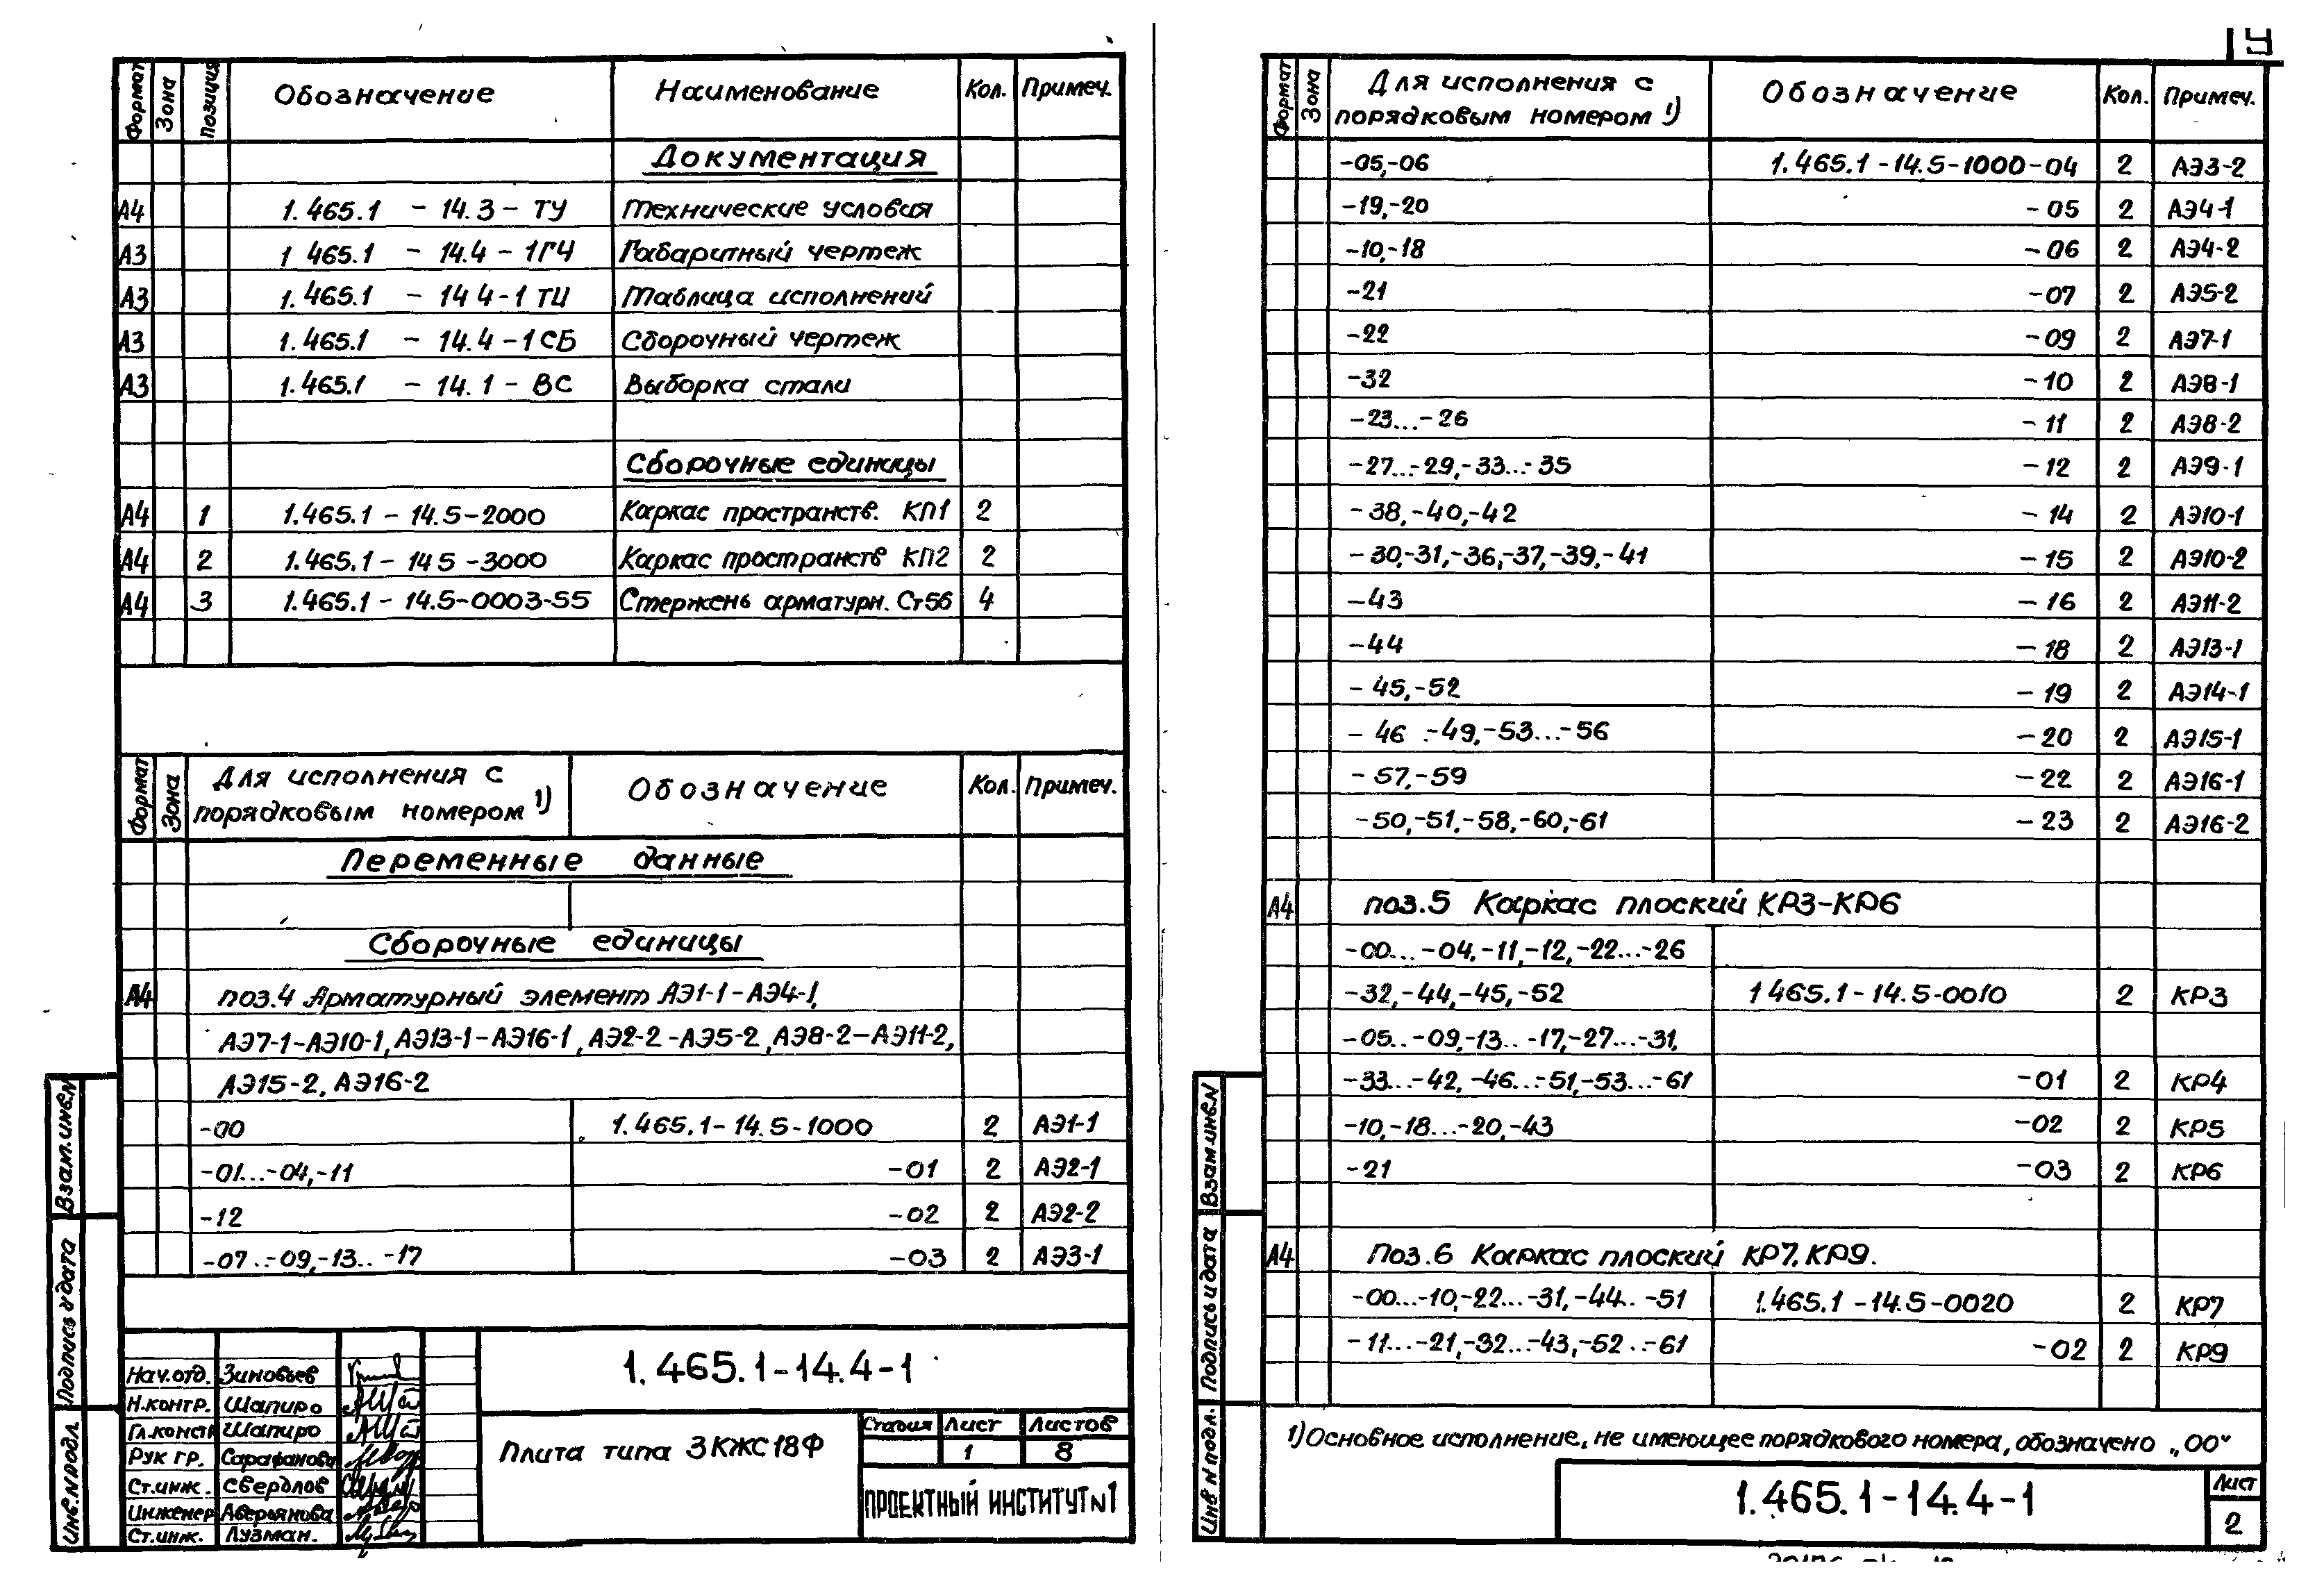 Формат Зона Позиция Обозначение Наименование Кол. Примеч.
Документация
А4 1.465.1 - 14.3 - ТУ Технические условия
А3 1 465.1 - 14.4 - 1ГЧ Габаритный чертеж
А3 1.465.1 - 14 4-1 ТИ Таблица исполнений
А3 1.465.1 - 14.4 - 1СБ Сборочный чертеж
А3 1.465.1 - 14.1 - ВС Выборка стали
Сборочные единицы
А4 1 1.465.1 - 14.5-2000 Каркас пространств. КП1 2
А4 2 1.465.1 - 14 5 -3000 Каркас пространств КП2 2
А4 3 1.465.1 - 14.5-0003-55 Стержень арматурн. Ст56 4
Формат Зона Для исполнения с порядковым номером 1) Обозначение Кол. Примеч.
Переменные данные
Сборочные единицы
А4 поз.4 Арматурный элемент АЭ1-1-АЭ4-1,
АЭ7-1-АЭ10-1, АЭ13-1-АЭ16-1, АЭ2-2-АЭ5-2, АЭ8-2-АЭ11-2,
АЭ15-2, АЭ16-2
-00 1.465.1-14.5-1000 2 АЭ1-1
-01...-04,-11 -01 2 АЭ2-1
-12 -02 2 АЭ2-2
-07..-09,-13..-17 -03 2 АЭ3-1
Взам.инв.N
Подпись и дата
Инв.N подл.
Нач.отд. Зиновьев
Н.контр. Шапиро
Гл.констр Шапиро
Рук гр. Сарафанова
Ст.инж. Свердлов
Инженер Аверьянова
Ст.инж. Лузман.
1.465.1-14.4-1
Плита типа 3КЖС18Ф
Стадия Лист Листов
1 8
ПРОЕКТНЫЙ ИНСТИТУТ N1
14
Формат Зона Для исполнения с порядковым номером 1) Обозначение Кол. Примеч.
-05,-06 1.465.1-14.5-1000-04 2 АЭ3-2
-19,-20 -05 2 АЭ4-1
-10,-18 -06 2 АЭ4-2
-21 -07 2 АЭ5-2
-22 -09 2 АЭ7-1
-32 -10 2 АЭ8-1
-23...-26 -11 2 АЭ8-2
-27...-29,-33...-35 -12 2 АЭ9-1
-38,-40,-42 -14 2 АЭ10-1
-30,-31,-36,-37,-39,-41 -15 2 АЭ10-2
-43 -16 2 АЭ11-2
-44 -18 2 АЭ13-1
-45,-52 -19 2 АЭ14-1
-46 .-49,-53...-56 -20 2 АЭ15-1
-57,-59 -22 2 АЭ16-1
-50,-51,-58,-60,-61 -23 2 АЭ16-2
А4 поз.5 Каркас плоский КР3-КР6
-00...-04,-11,-12,-22...-26
-32,-44,-45,-52 1 465.1-14.5-0010 2 КР3
-05..-09,-13..-17,-27...-31,
-33...-42,-46...-51,-53...-61 -01 2 КР4
-10,-18...-20,-43 -02 2 КР5
-21 -03 2 КР6
А4 Поз.6 Каркас плоский КР7, КР9.
-00...-10,-22...-31,-44..-51 1.465.1-14.5-0020 2 КР7
-11...-21,-32...-43,-52..-61 -02 2 КР9
1) Основное исполнение, не имеющее порядкового номера, обозначено „00"
Взам.инв.N
Подпись и дата
Инв N подл.
1.465.1-14.4-1
Лист
2